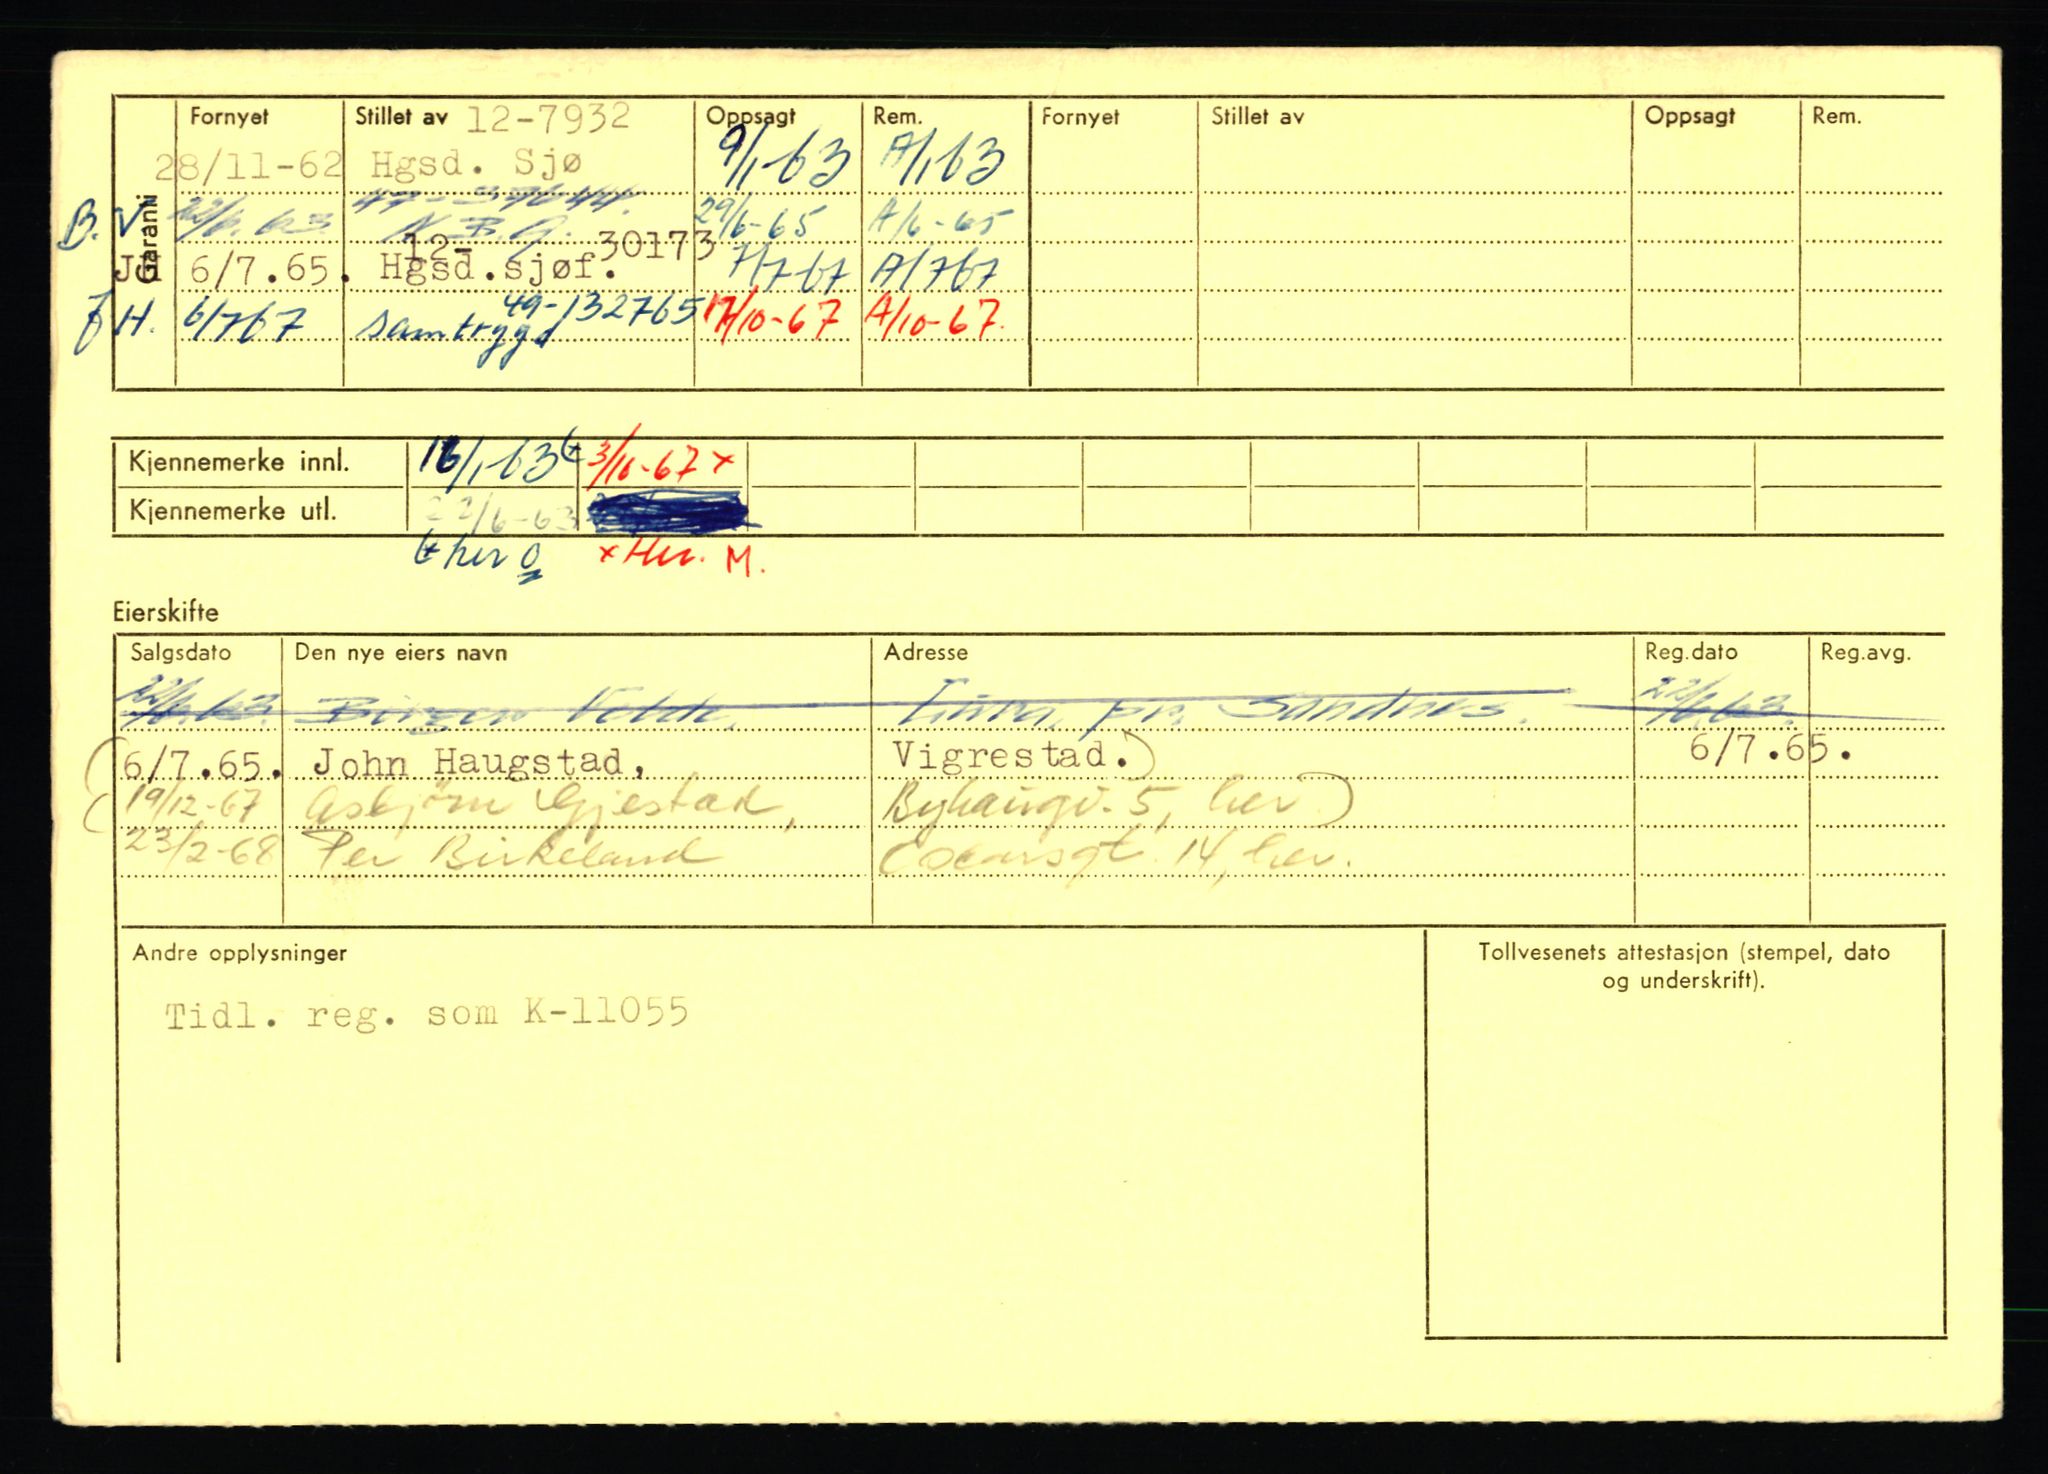 Garanti
Fornyet Stillet av 12-7932 Oppsagt Rem. Fornyet Stillet av Oppsagt Rem.
28/11-62 Hgsd. Sjø 9/1-63 A/1-63
B. V. 22/6.63 N.B.G. 29/6-65 A/6-65
12- 30173
6/7.65. Hgsd.sjøf. 7/7-67 A/767
49-132765
H. 6/767 Samtrygd 17/10-67 A/10-67.
Kjennemerke innl. 16/1-63 3/10-67 x
Kjennemerke utl. 22/6-63
her O x Her. M.
Eierskifte
Salgsdato Den nye eiers navn Adresse Reg.dato Reg.avg.
22/6.63. Birger Lura, pr. Sandnes. 22/6.63.
(6/7.65. John Haugstad, Vigrestad.) 6/7.65.
(19/12-67 Asbjørn Gjestad, Byhaugv. 5, her)
23/2-68 Per Birkeland Oscarsgt. 14, her.
Andre opplysninger
Tollvesenets attestasjon (stempel, dato
og underskrift).
Tidl. reg. som K-11055